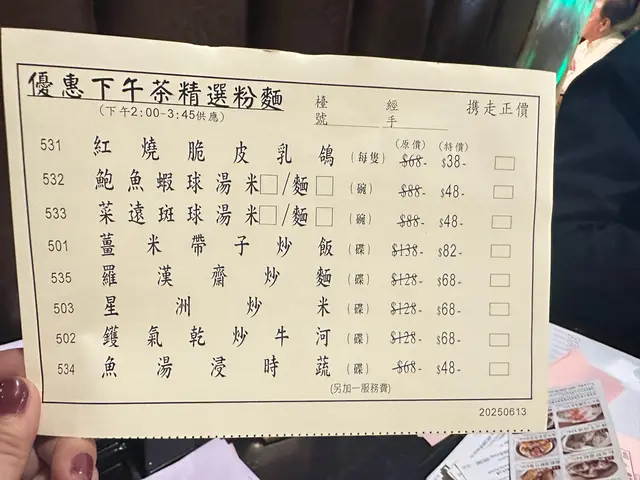 優惠下午茶精選粉麵
(下午2:00-3:45供應)
檯號 經手
攜走正價
(原價) (特價)
531 紅燒脆皮乳鴿 (每隻) $68- $38-
532 鮑魚蝦球湯米□/麵□ (碗) $88- $48-
533 菜遠斑球湯米□/麵□ (碗) $88- $48-
501 薑米帶子炒飯 (碟) $138- $82-
535 羅漢齋炒麵 (碟) $128- $68-
503 星洲炒米 (碟) $128- $68-
502 鑊氣乾炒牛河 (碟) $128- $68-
534 魚湯浸時蔬 (碟) $68- $48-
(另加一服務費)
20250613